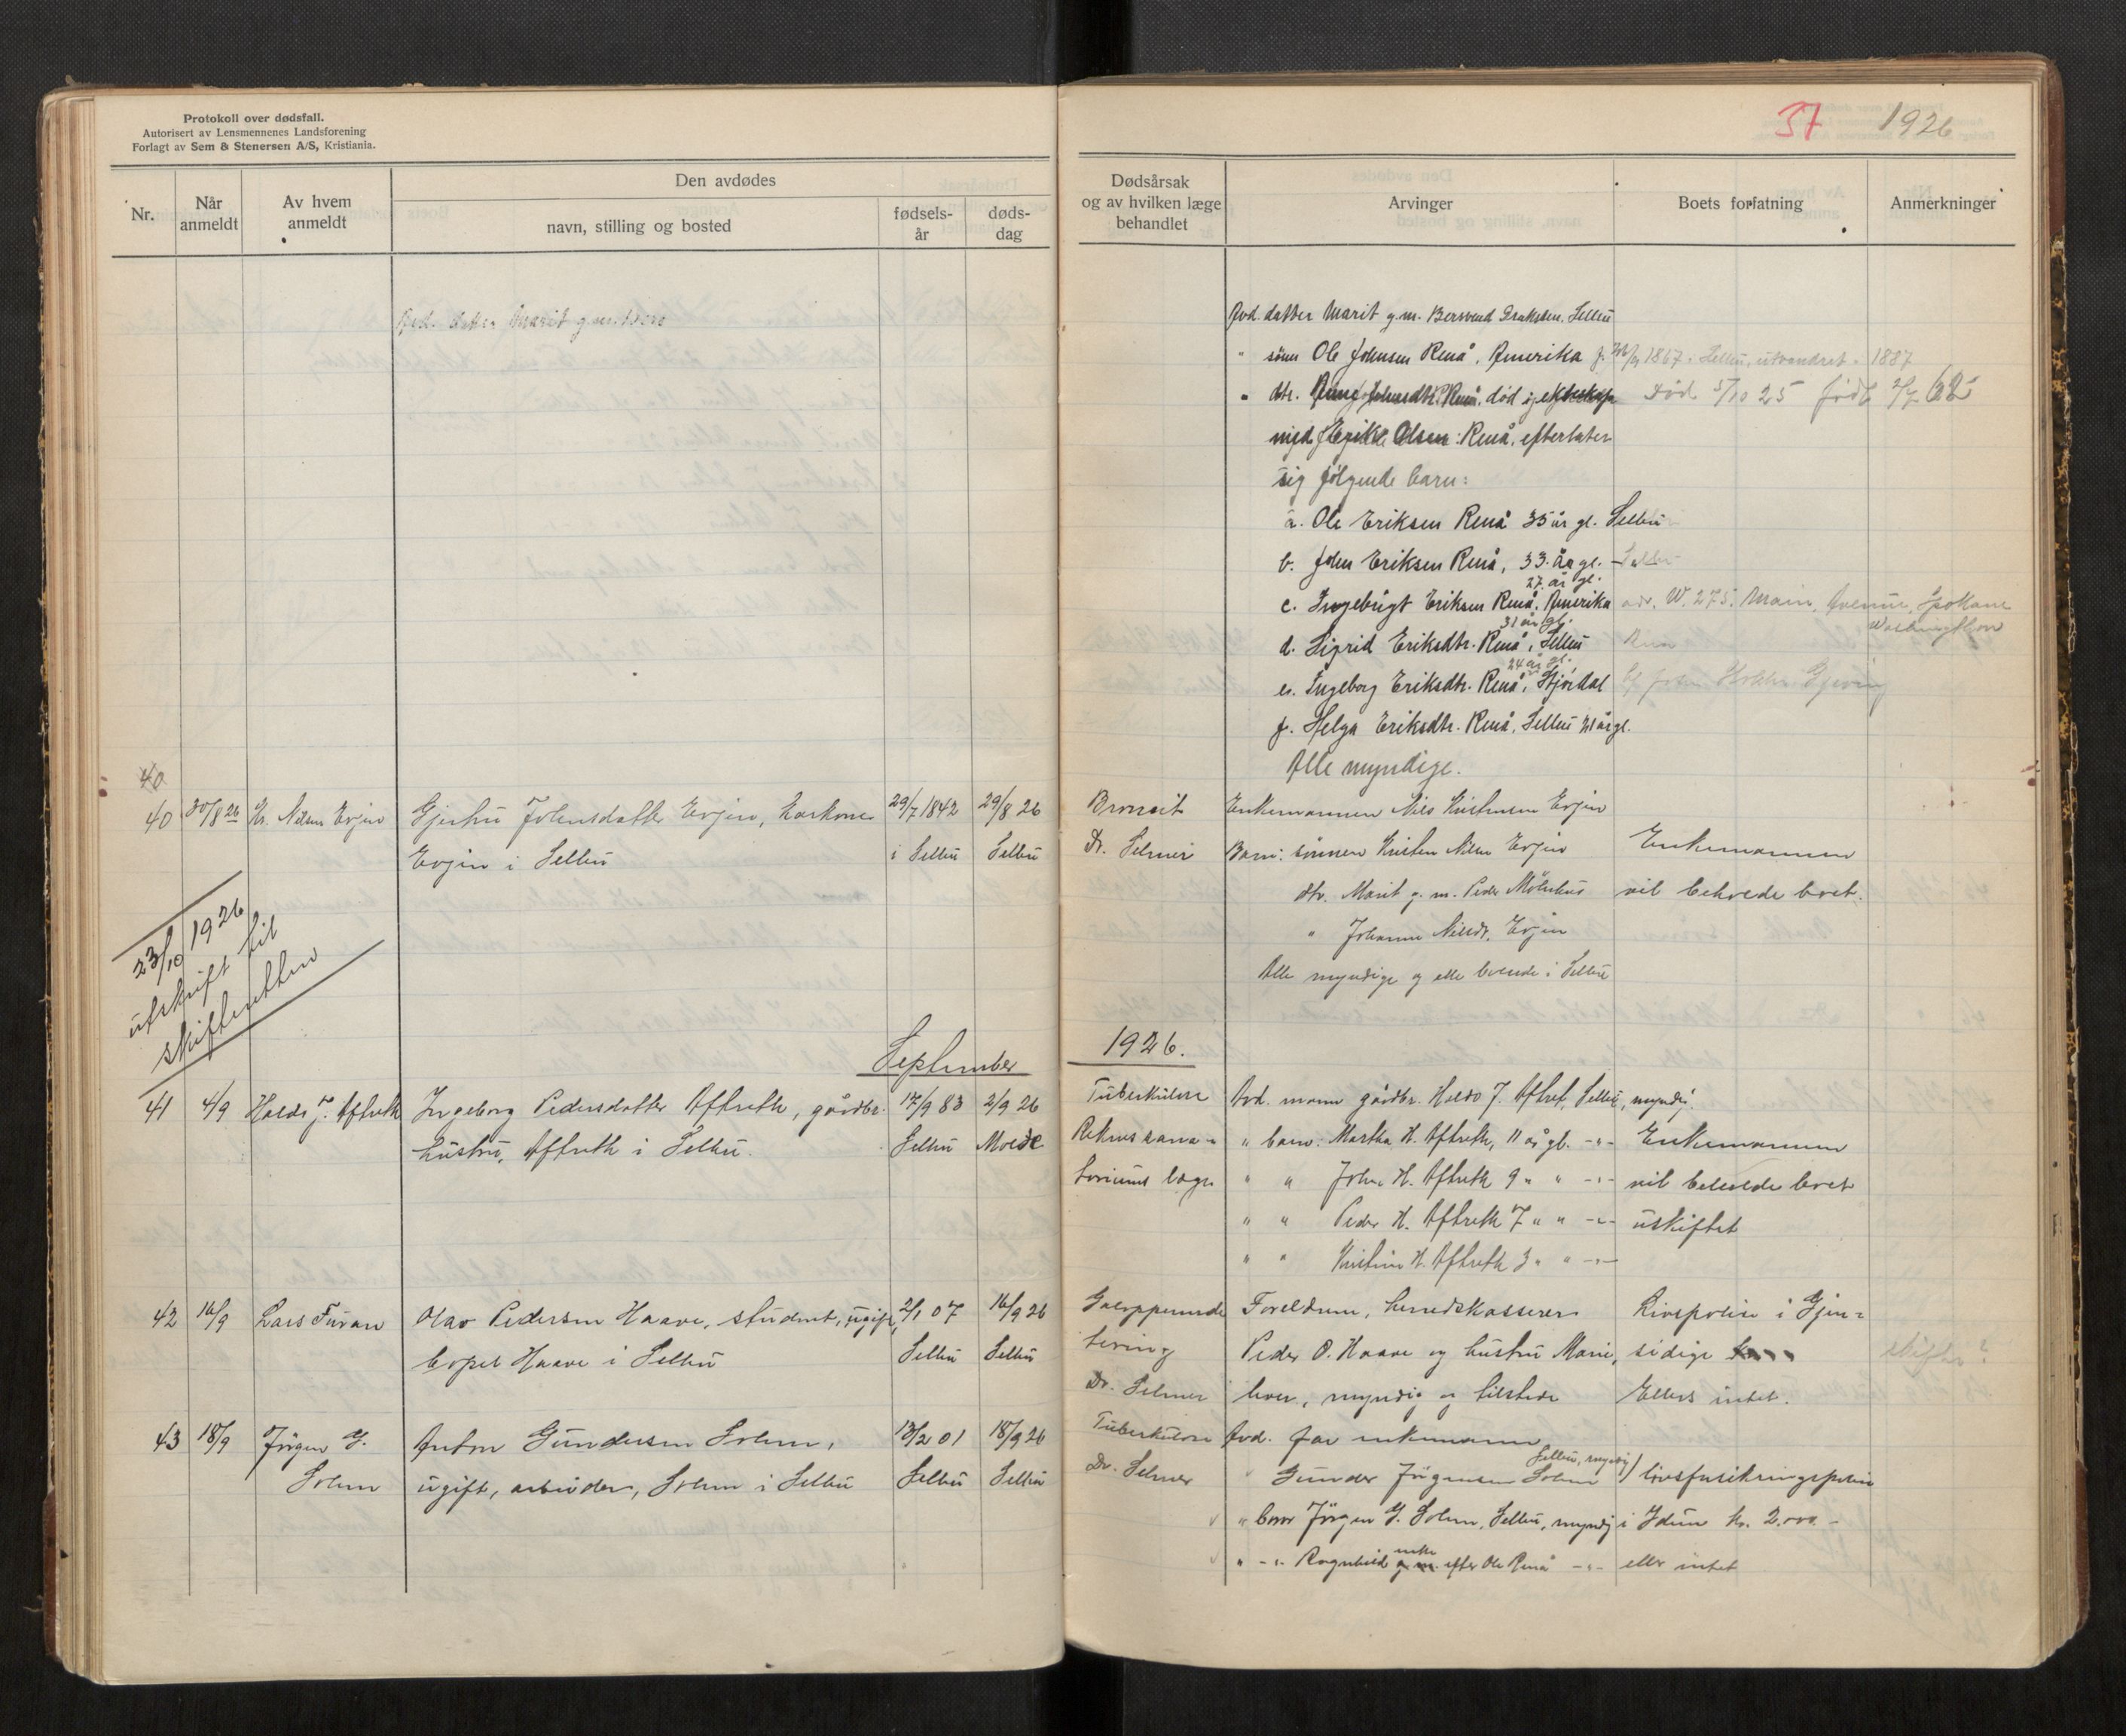 Protokoll over dødsfall.
Autorisert av Lensmennenes Landsforening
Forlagt av Sem & Stenersen A/S, Kristiania.
Nr.
Når anmeldt
Av hvem anmeldt
Den avdødes
navn, stilling og bosted
fødsels-
år
døds-
dag
Avd. datter Marit g.m.
40
40 30/8 26 Kr. Nilsen Evjen Gjertru Johnsdatter Evjen, karkone 29/7 1842 29/8 26
Evjen i Selbu i Selbu Selbu
23/10 1926
utskrift til
skifteretten
September
41 4/9 Haldo J. Aftreth Ingeborg Pedersdatter Aftreth, gårdbr. 17/9 83 2/9 26
hustru, Aftreth i Selbu. Selbu Molde
42 16/9 Lars Furan Olav Pedersen Haave, student, ugift, 2/1 07 16/9 26
bopel Haave i Selbu Selbu Selbu
43 18/9 Jørgen G. Anton Gundersen Solem, 13/2 01 18/9 26
Solem ugift, arbeider, Solem i Selbu Selbu Selbu
37 1926
Dødsårsak
og av hvilken læge
behandlet
Arvinger
Boets forfatning
Anmerkninger
Avd. datter Marit g.m. Bersvend Selbu
" sønn Ole Johnsen Renå, Amerika f. 1867. Selbu, utvandret 1887
" dtr. Johnsdtr. Renå. død i ekteskap Død 5/10 25 født 2/7 62
med Erik Olsen Renå, efterlater
sig følgende barn:
a. Ole Eriksen Renå 35 år gl. Selbu
b. John Eriksen Renå, 33 år gl. - Selbu
27 år gl.
c. Ingebrigt Eriksen Renå. Amerika adr. W. 275. Main, Avenue, Spokane
Washington
31 år gl.
d. Sigrid Eriksdtr. Renå, Selbu
24 år gl.
e. Ingeborg Eriksdtr. Renå, Stjørdal
f. Helga Eriksdtr. Renå, Selbu 21 år gl.
Alle myndige.
Broncit Enkemannen Nils Kristensen Evjen
Dr. Selmer Barn: sønnen Kristen Nilsen Evjen Enkemannen
dtr. Marit g.m. Peder Mölnhus vil beholde boet.
" Johanna Nilsdt. Evjen
Alle myndige og alle boende i Selbu
1926.
Tuberkulose Avd. mann gårdbr. Haldo J. Aftret, Selbu, myndig.
Reknes sana- " barn: Martha H. Aftreth, 11 år gl. -"- Enkemannen
toriums læge " " John H. Aftreth 9 " " -"- vil beholde boet
" " Peder H. Aftreth 7 " " -"- uskiftet
" " Kristine H. Aftreth 3 " " -"-
Galopperende Foreldrene, herredskasserer Livspolise i Gjen-
tæring Peder O. Haave og hustru Marie, sidige skifte?
Dr. Selmer lever, myndig og tilstede Ellers intet.
Tuberkulose Avd. far enkemann
Selbu, myndig
Dr. Selmer " Gunder Jørgensen Solem livsforsikringspolise
" bror Jørgen G. Solem, Selbu, myndig i Idun kr. 2.000.-
enke
" -"- Ragnhild g.m. efter Ole Renå -"- eller intet